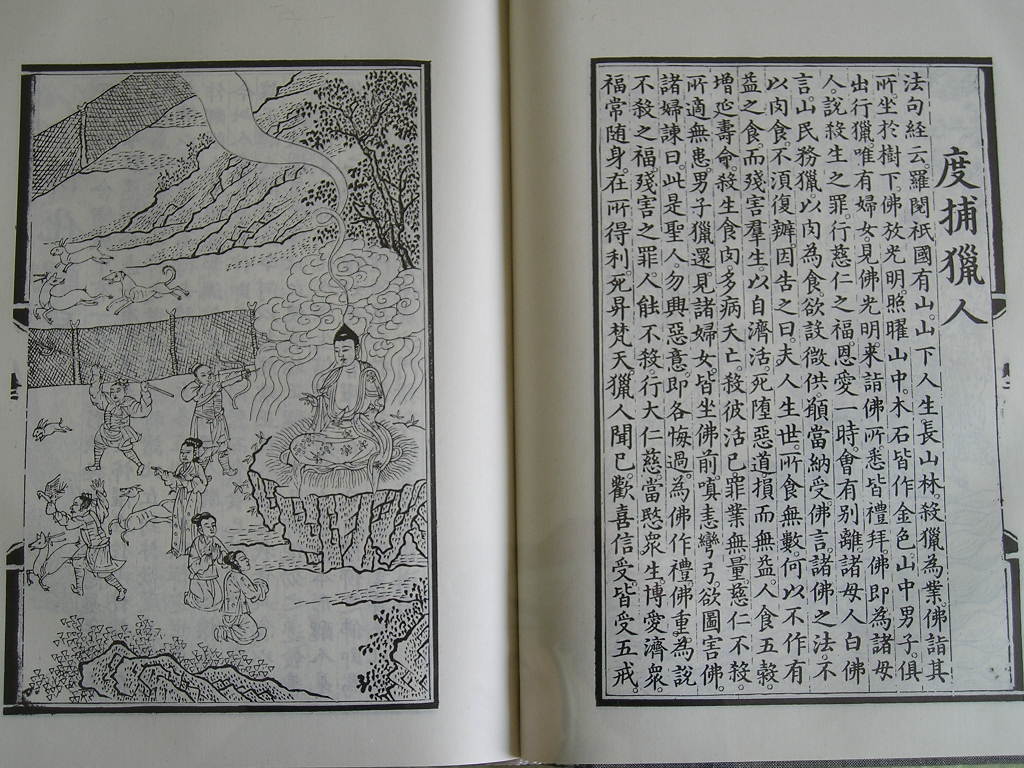 度捕獵人
法句經云。羅閱祇國有山。山下人生長山林。殺獵為業。佛詣其
所坐於樹下。佛放光明。照曜山中。木石皆作金色。山中男子。俱
出行獵。唯有婦女。見佛光明。來詣佛所。悉皆禮拜。佛即為諸母
人。說殺生之罪。行慈仁之福。恩愛一時。會有別離。諸母人白佛
言。山民務獵。以肉為食。欲設微供。願當納受。佛言。諸佛之法。不
以肉食。不須復辦。因告之曰。夫人生世。所食無數。何以不作有
益之食。而殘害羣生。以自濟活。死墮惡道。損而無益。人食五穀。
增延壽命。殺生食肉。多病夭亡。殺彼活己。罪業無量。慈仁不殺。
所適無患。男子獵還。見諸婦女。皆坐佛前。嗔恚彎弓。欲圖害佛。
諸婦諫曰。此是聖人。勿興惡意。即各悔過。為佛作禮。佛重為說
不殺之福。殘害之罪。人能不殺。行大仁慈。當愍眾生。博愛濟眾。
福常随身。在所得利。死昇梵天。獵人聞已。歡喜信受。皆受五戒。